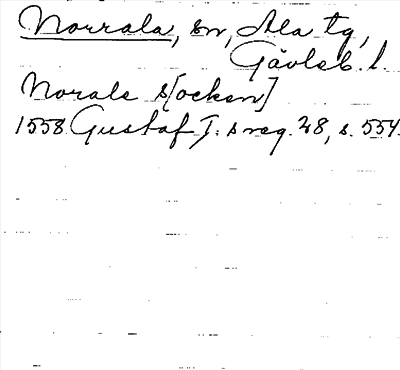 Norrala, sn, Ala tg,
Gävleb. l.
Norale s[ocken]
1558 Gustaf I:s reg. 28, s. 554.